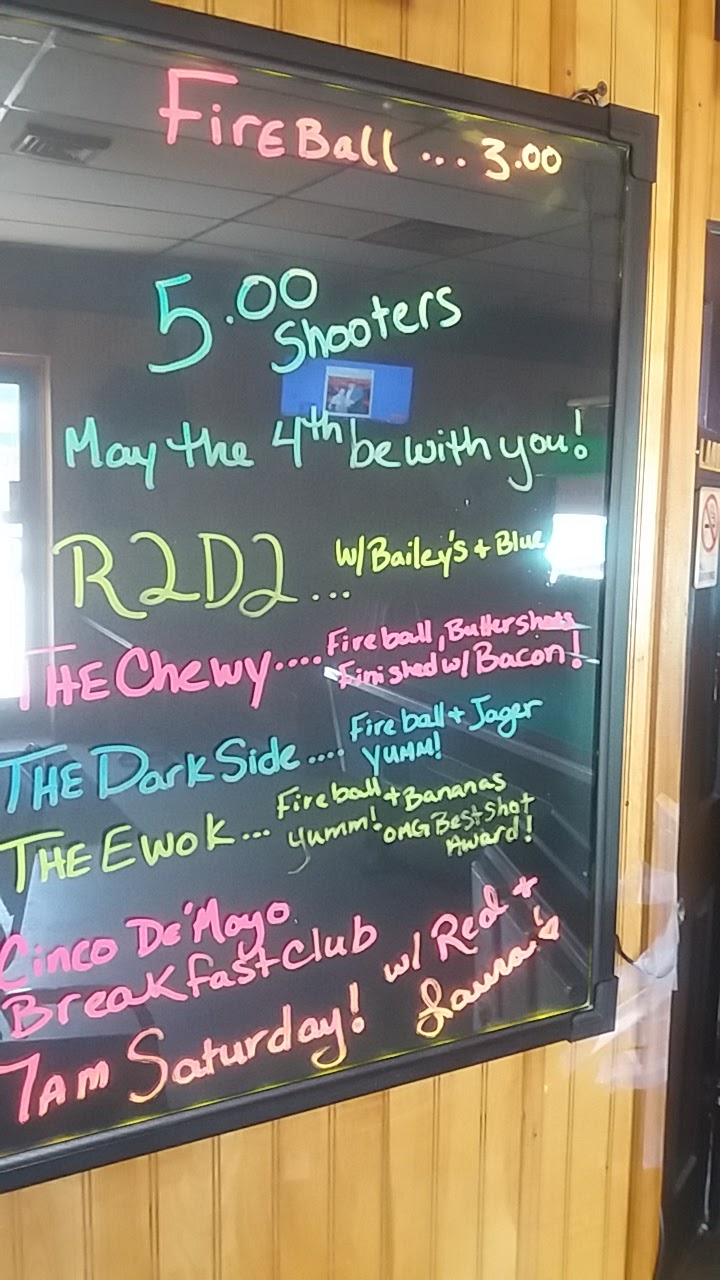 FireBall ... 3.00
5.00
Shooters
May the 4th be with you!
R2D2 ... w/Bailey's + Blue
THE Chewy .... Fireball, Buttershots
Finished w/ Bacon!
THE Dark Side .... Fireball + Jager
YUMM!
THE Ewok ... Fireball + Bananas
Yumm! OMG Best Shot
Award!
Cinco De'Mayo
Breakfast Club
7am Saturday! w/ Red +
Laura's